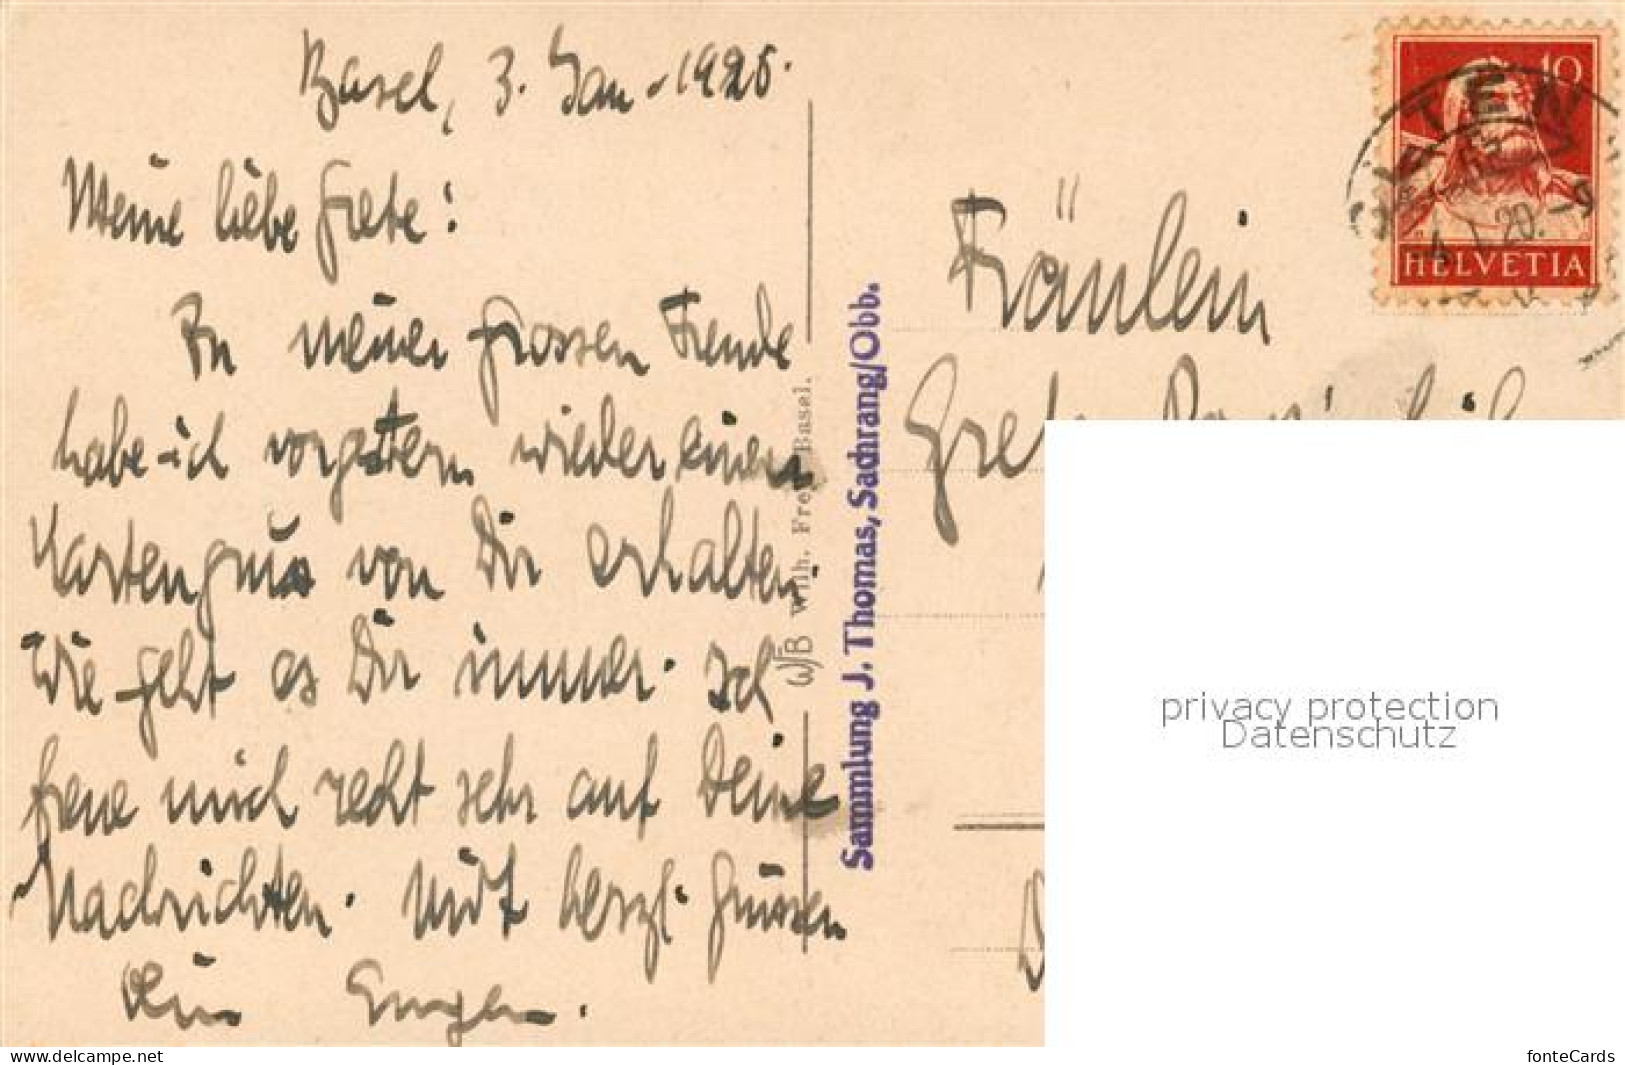 Basel, 3. Jan. 1925.
Meine liebe Grete:
Zu meiner grossen Freude
habe ich vorgestern wieder einen
Kartengruss von Dir erhalten.
Wie geht es Dir immer. Ich
freue mich recht sehr auf Deine
Nachrichten. Mit herzl. Grüssen
Dein Eugen.
W/B Wilh. Frey, Basel.
Sammlung J. Thomas, Sachrang/Obb.
10
HELVETIA
Fräulein
privacy protection
Datenschutz
www.delcampe.net
fonteCards